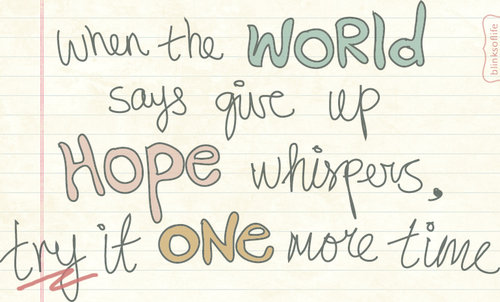 when the WORld
says give up
HOPe whispers,
try it ONe more time
blinksoflife